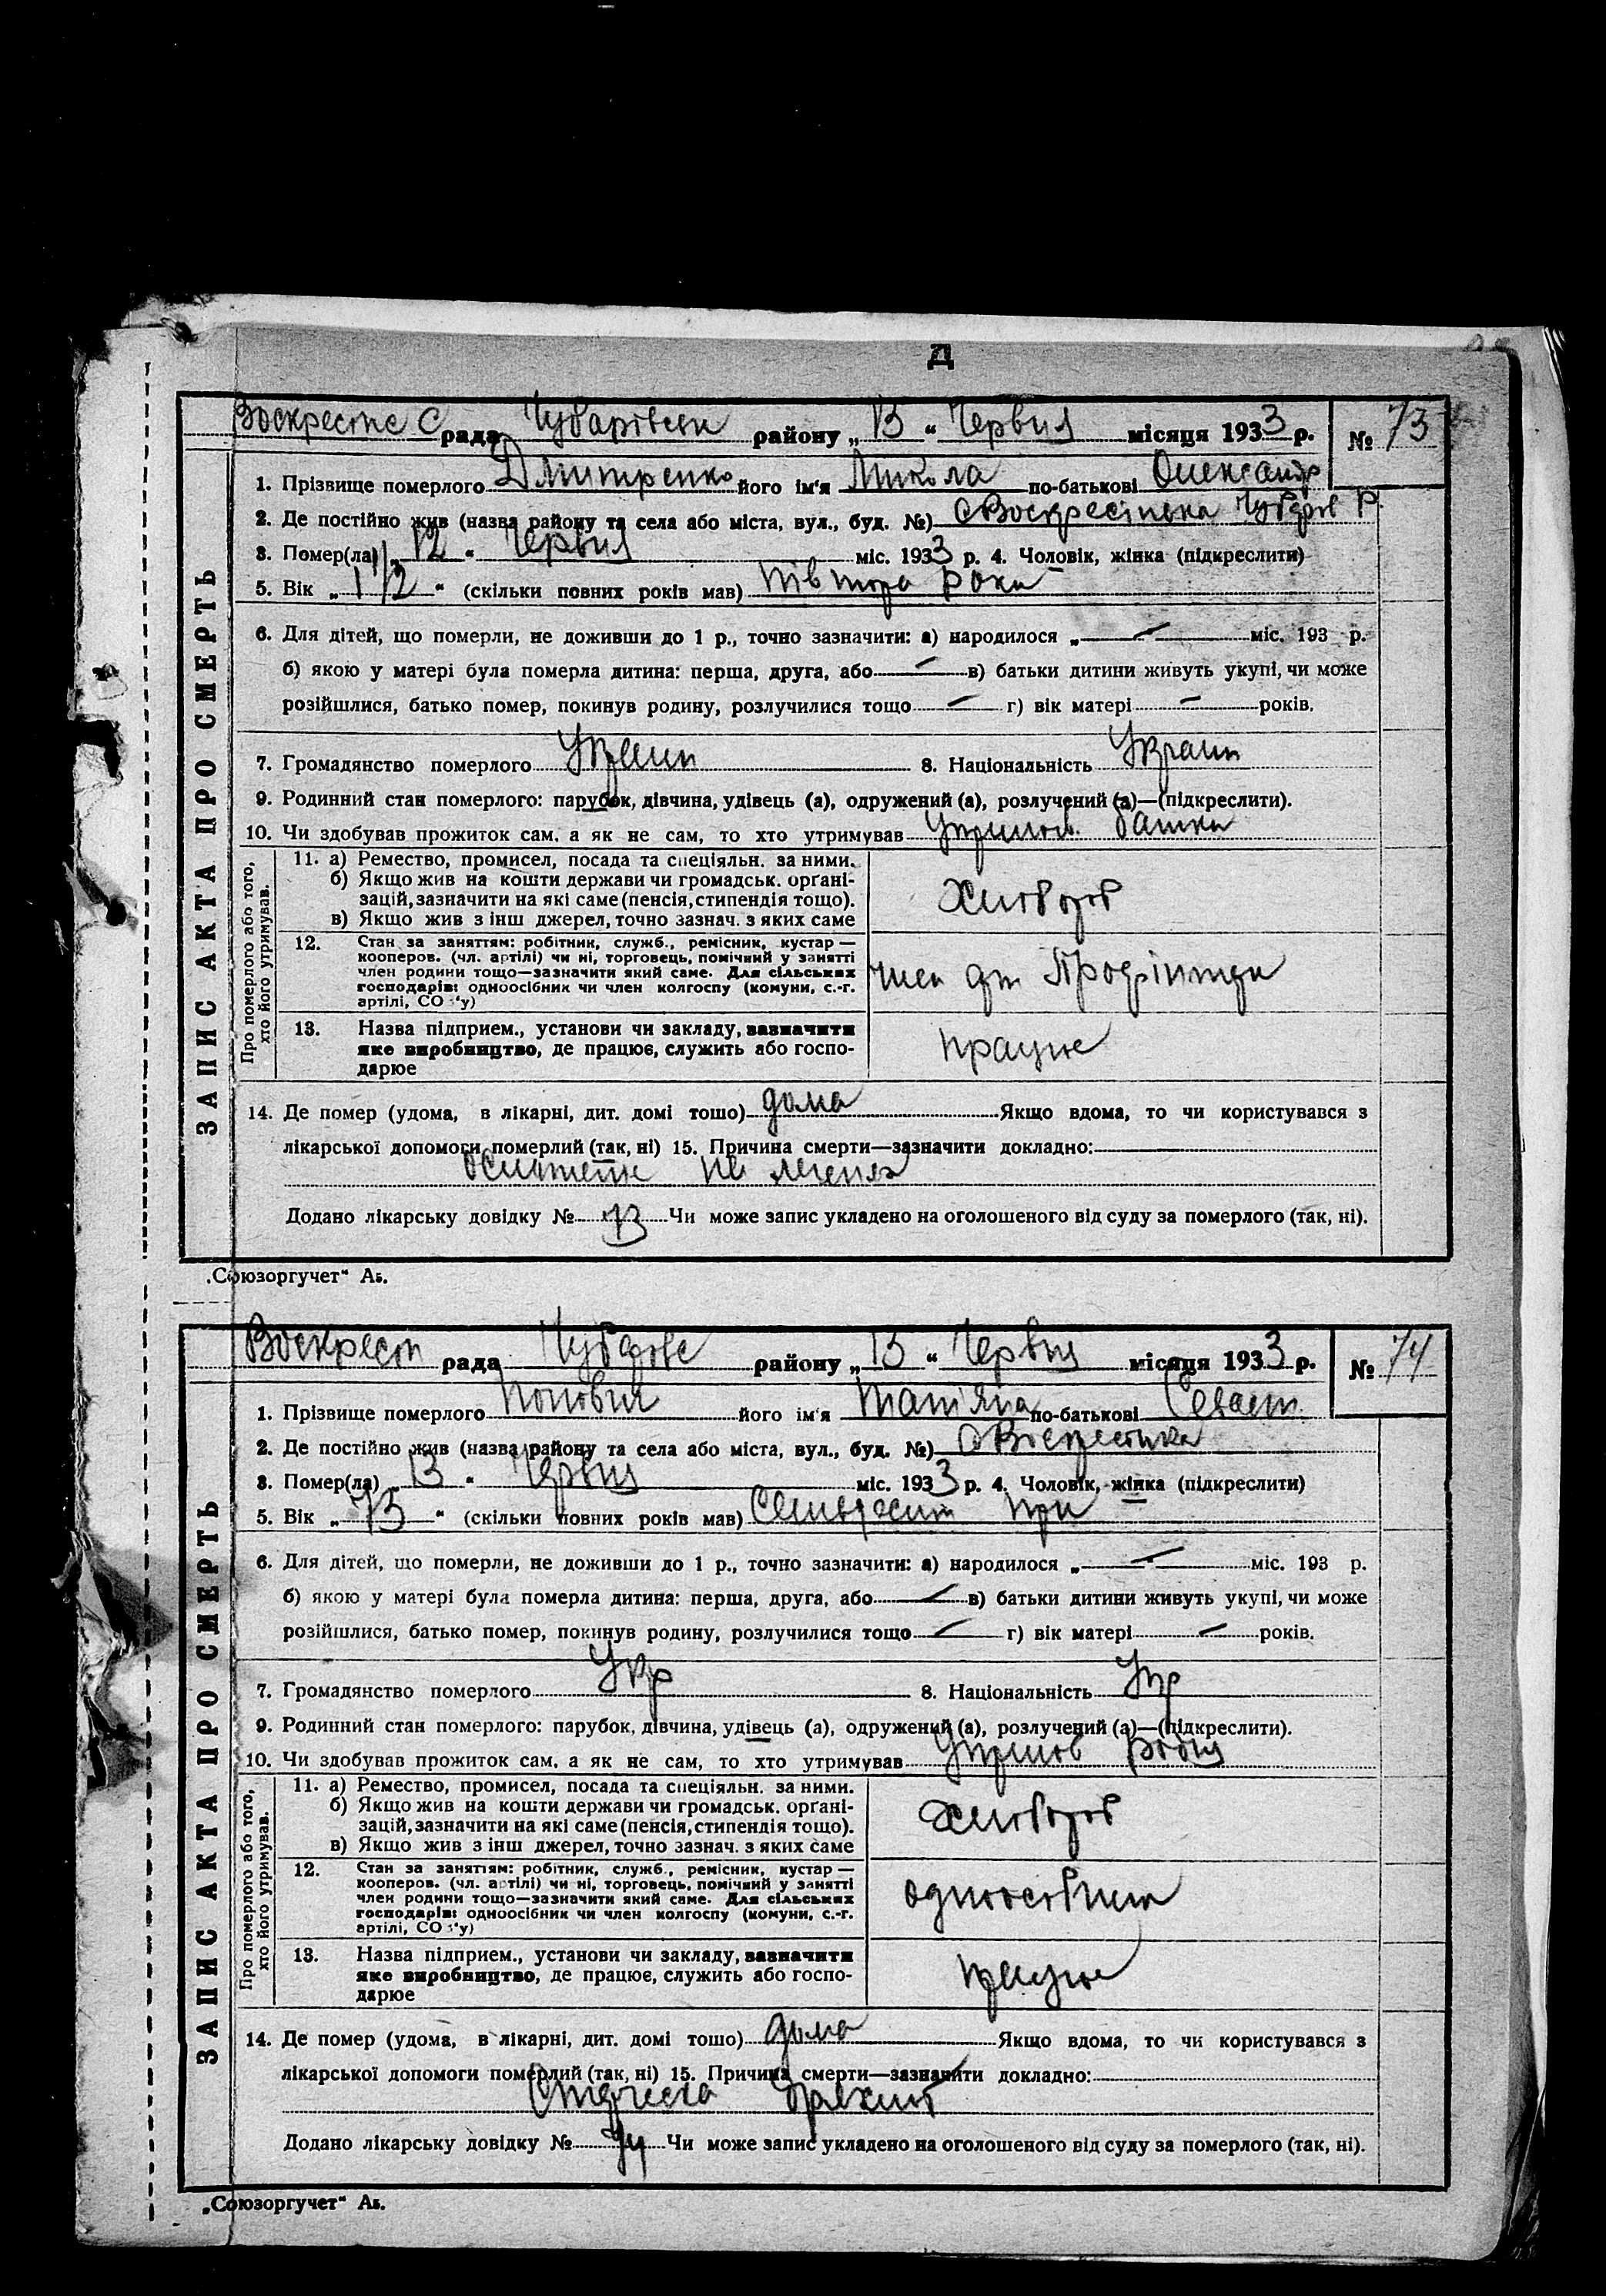 Д
Воскресенс С рада Чубарівськ району „ 13 “ Червня місяця 1933 р. № 73
1. Прізвище померлого Дмитренко його ім'я Микола по-батькові Олександр
2. Де постійно жив (назва району та села або міста, вул., буд. №) с Воскресінька Чубарів Р.
3. Помер(ла) „ 12 “ Червня міс. 1933 р. 4. Чоловік, жінка (підкреслити)
5. Вік „ 1 1/2 “ (скільки повних років мав) півтора роки
6. Для дітей, що померли, не доживши до 1 р., точно зазначити: а) народилося „ — міс. 193 р.
б) якою у матері була померла дитина: перша, друга, або — в) батьки дитини живуть укупі, чи може
розійшлися, батько помер, покинув родину, розлучилися тощо — г) вік матері — років.
7. Громадянство померлого Украин 8. Національність Украин
9. Родинний стан померлого: парубок, дівчина, удівець (а), одружений (а), розлучений (а)—(підкреслити).
10. Чи здобував прожиток сам, а як не сам, то хто утримував батька
ЗАПИС АКТА ПРО СМЕРТЬ
Про померлого або того, хто його утримував.
11. а) Ремество, промисел, посада та спеціяльн. за ними.
б) Якщо жив на кошти держави чи громадськ. орґані-
зацій, зазначити на які саме (пенсія, стипендія тощо).
в) Якщо жив з інш джерел, точно зазнач. з яких саме
Хлібороб
12. Стан за заняттям: робітник, служб., ремісник, кустар —
кооперов. (чл. артілі) чи ні, торговець, помічний у занятті
член родини тощо—зазначити який саме. Для сільських
господарів: одноосібник чи член колгоспу (комуни, с.-г.
артілі, СО у)
член арт
13. Назва підприєм., установи чи закладу, зазначити
яке виробництво, де працює, служить або госпо-
дарює
працює
14. Де помер (удома, в лікарні, дит. домі тошо) дома Якщо вдома, то чи користувався з
лікарської допомоги померлий (так, ні) 15. Причина смерти—зазначити докладно:
на легенях
Додано лікарську довідку № 73 Чи може запис укладено на оголошеного від суду за померлого (так, ні).
„Союзоргучет“ Ав.
Воскресн рада Чубарівс району „ 13 “ Червня місяця 1933 р. № 74
1. Прізвище померлого Попович його ім'я Татіяна по-батькові Севаст.
2. Де постійно жив (назва району та села або міста, вул., буд. №) с Воскресенка
3. Помер(ла) „ 13 “ Червня міс. 1933 р. 4. Чоловік, жінка (підкреслити)
5. Вік „ 73 “ (скільки повних років мав) Семдесят три
6. Для дітей, що померли, не доживши до 1 р., точно зазначити: а) народилося „ — міс. 193 р.
б) якою у матері була померла дитина: перша, друга, або — в) батьки дитини живуть укупі, чи може
розійшлися, батько помер, покинув родину, розлучилися тощо — г) вік матері — років.
7. Громадянство померлого Укр 8. Національність Укр
9. Родинний стан померлого: парубок, дівчина, удівець (а), одружений (а), розлучений (а)—(підкреслити).
10. Чи здобував прожиток сам, а як не сам, то хто утримував
ЗАПИС АКТА ПРО СМЕРТЬ
Про померлого або того, хто його утримував.
11. а) Ремество, промисел, посада та спеціяльн. за ними.
б) Якщо жив на кошти держави чи громадськ. орґані-
зацій, зазначити на які саме (пенсія, стипендія тощо).
в) Якщо жив з інш джерел, точно зазнач. з яких саме
Хлібороб
12. Стан за заняттям: робітник, служб., ремісник, кустар —
кооперов. (чл. артілі) чи ні, торговець, помічний у занятті
член родини тощо—зазначити який саме. Для сільських
господарів: одноосібник чи член колгоспу (комуни, с.-г.
артілі, СО у)
одноосібник
13. Назва підприєм., установи чи закладу, зазначити
яке виробництво, де працює, служить або госпо-
дарює
працює
14. Де помер (удома, в лікарні, дит. домі тошо) дома Якщо вдома, то чи користувався з
лікарської допомоги померлий (так, ні) 15. Причина смерти—зазначити докладно:
Старческа
Додано лікарську довідку № 74 Чи може запис укладено на оголошеного від суду за померлого (так, ні).
„Союзоргучет“ Ав.